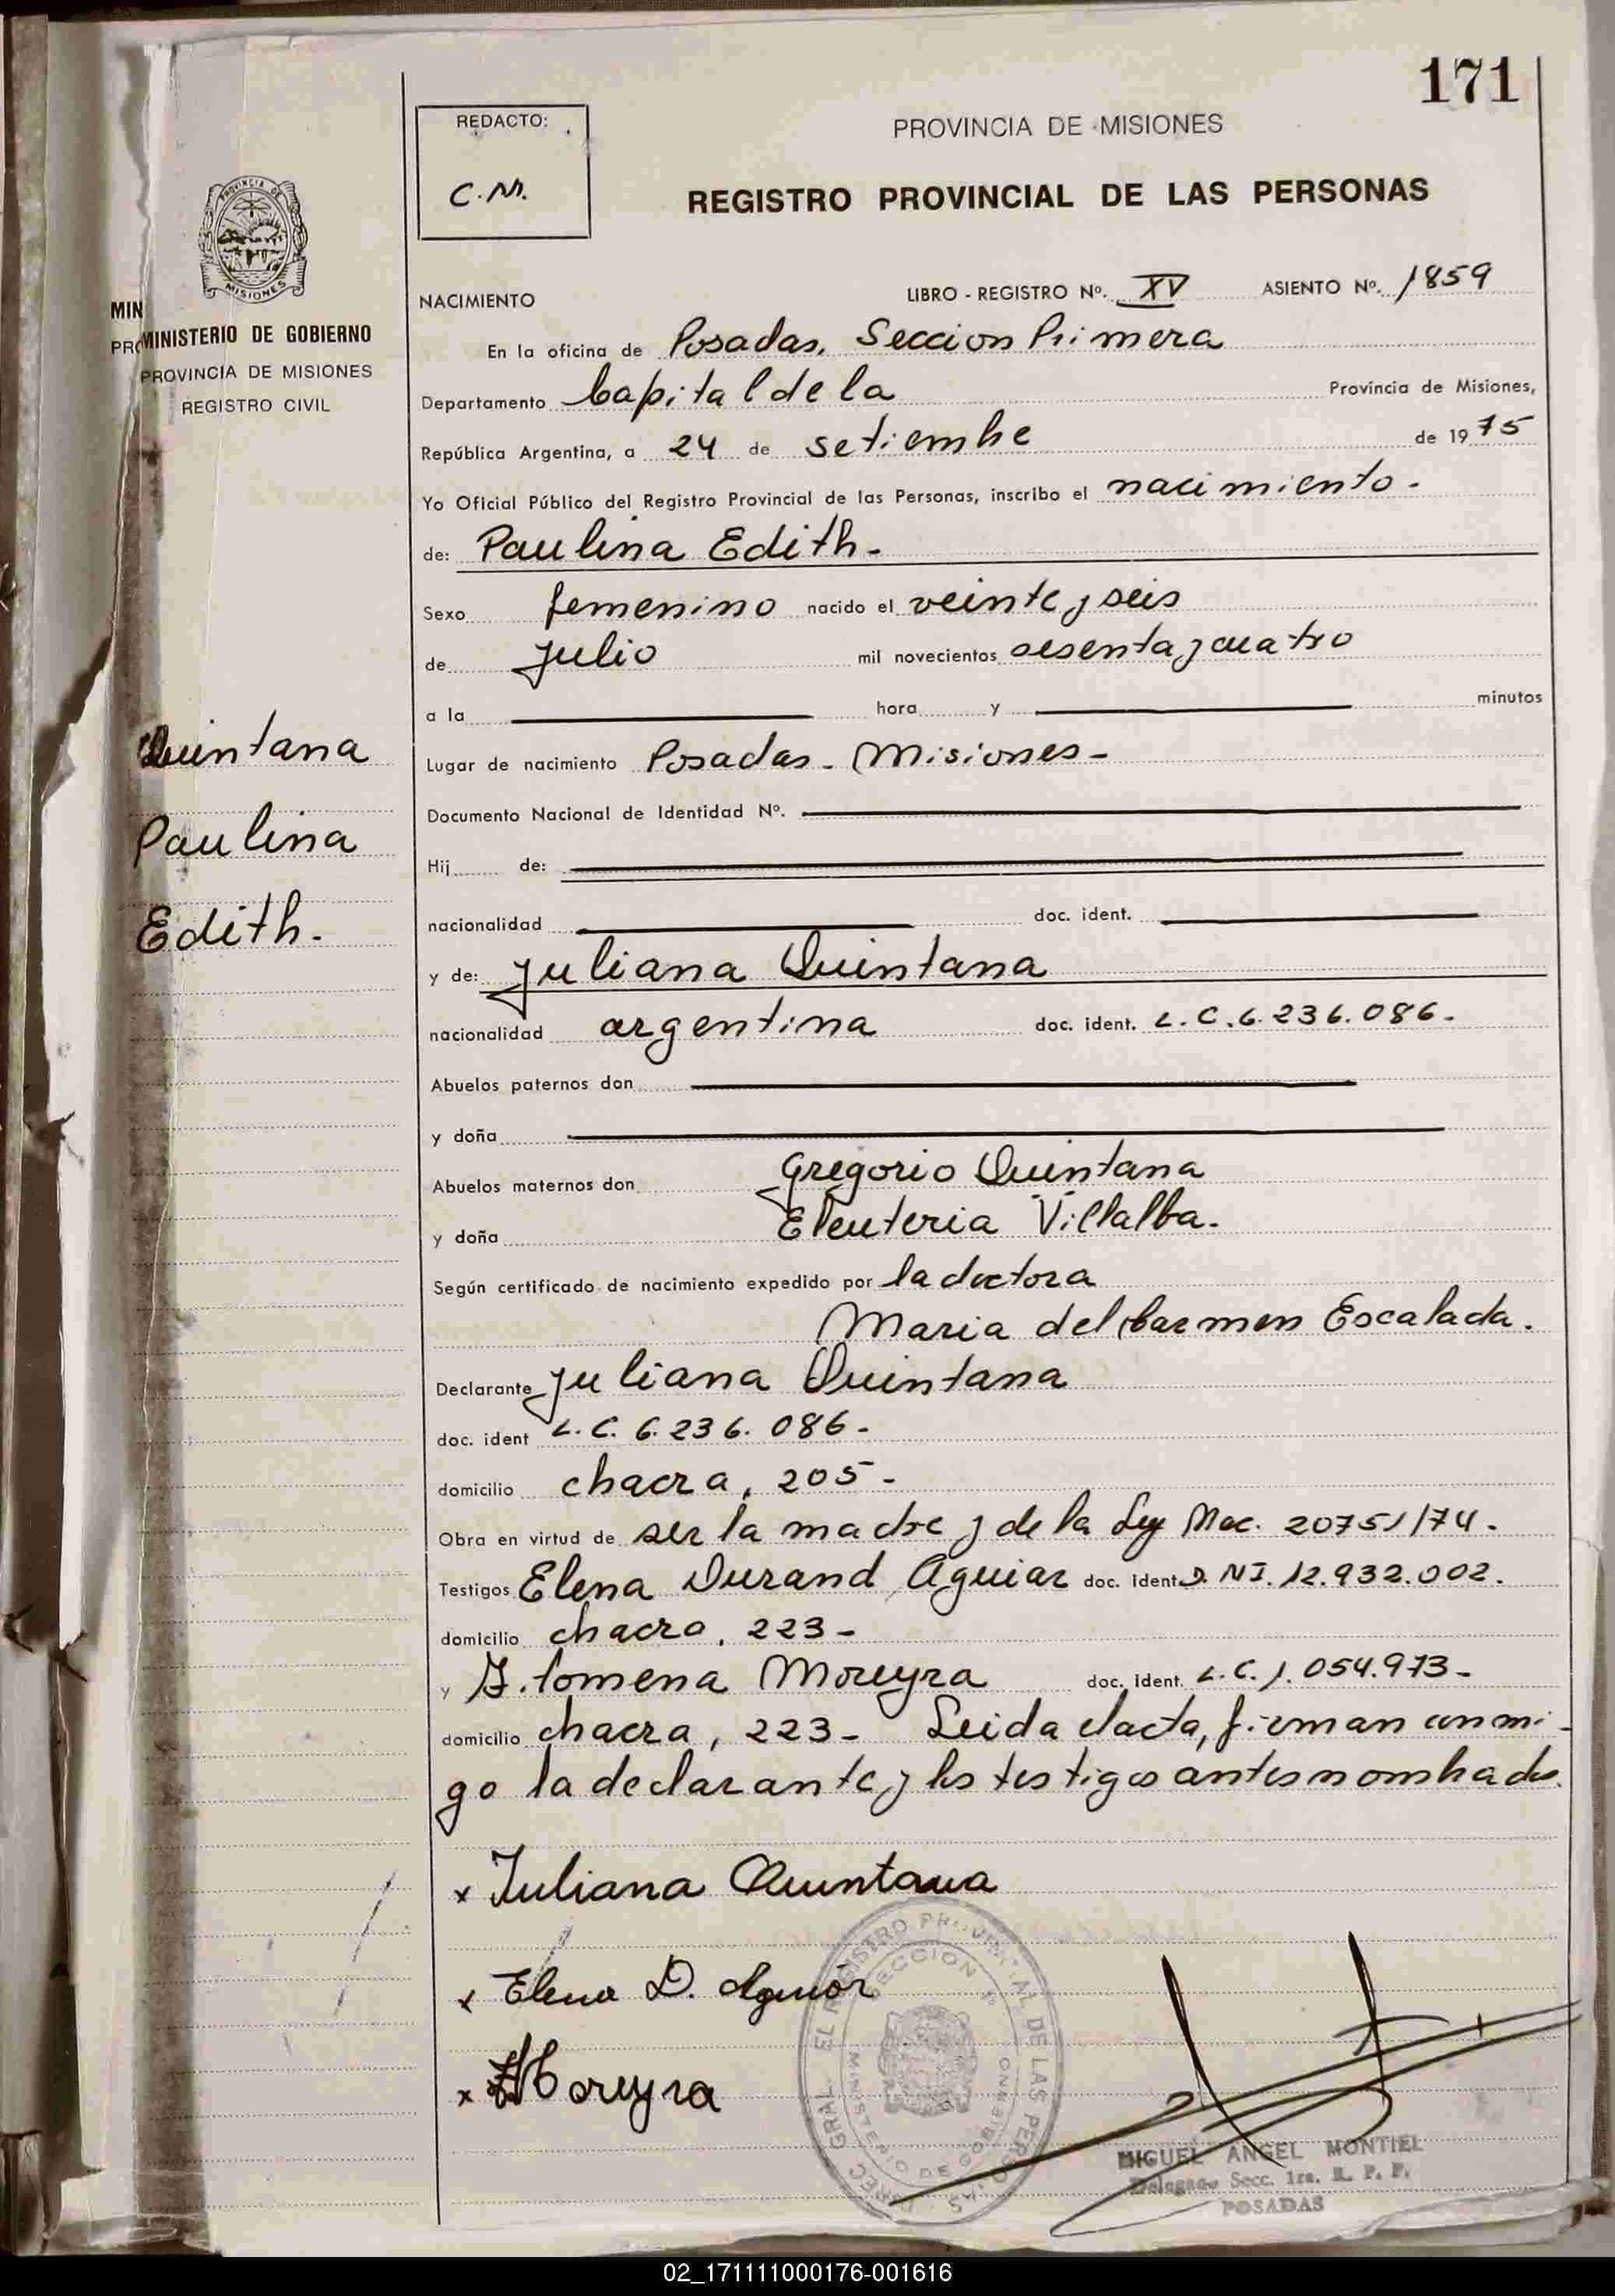 171
REDACTO:
C.M.
PROVINCIA DE MISIONES
REGISTRO PROVINCIAL DE LAS PERSONAS
MIN
MINISTERIO DE GOBIERNO
PROVINCIA DE MISIONES
REGISTRO CIVIL
NACIMIENTO
LIBRO - REGISTRO Nº. XV ASIENTO Nº. 1859
En la oficina de Posadas, Seccion Primera
Departamento Capital de la Provincia de Misiones,
República Argentina, a 24 de setiembre de 1975
Yo Oficial Público del Registro Provincial de las Personas, inscribo el nacimiento.
de: Paulina Edith.
Sexo femenino nacido el veinte y seis
de Julio mil novecientos sesenta y cuatro
a la hora y minutos
Quintana
Lugar de nacimiento Posadas - Misiones -
Documento Nacional de Identidad Nº.
Paulina
Hij de:
Edith.
nacionalidad doc. ident.
y de: Juliana Quintana
nacionalidad argentina doc. ident. L.C. 6.236.086.
Abuelos paternos don
y doña
Abuelos maternos don Gregorio Quintana
y doña Eleuteria Villalba.
Según certificado de nacimiento expedido por la doctora
Maria del Carmen Escalada.
Declarante Juliana Quintana
doc. ident L.C. 6.236.086-
domicilio chacra, 205-
Obra en virtud de ser la madre y de la Ley Nac. 20751/74.
Testigos Elena Durand Aguiar doc. ident. D.NI. 12.932.002.
domicilio chacra, 223-
y Filomena Moreyra doc. ident. L.C. 1.054.973-
domicilio chacra, 223- Leida el acta, firman conmi-
go la declarante y los testigos antes nombrados.
x Juliana Quintana
x Elena D. Aguiar
x F Moreyra
DIREC. GRAL. EL REGISTRO PROVINCIAL DE LAS PERSONAS
SECCION 1º
MINISTERIO DE GOBIERNO
MIGUEL ANGEL MONTIEL
Delegado Secc. 1ra. R. P. P.
POSADAS
02_171111000176-001616